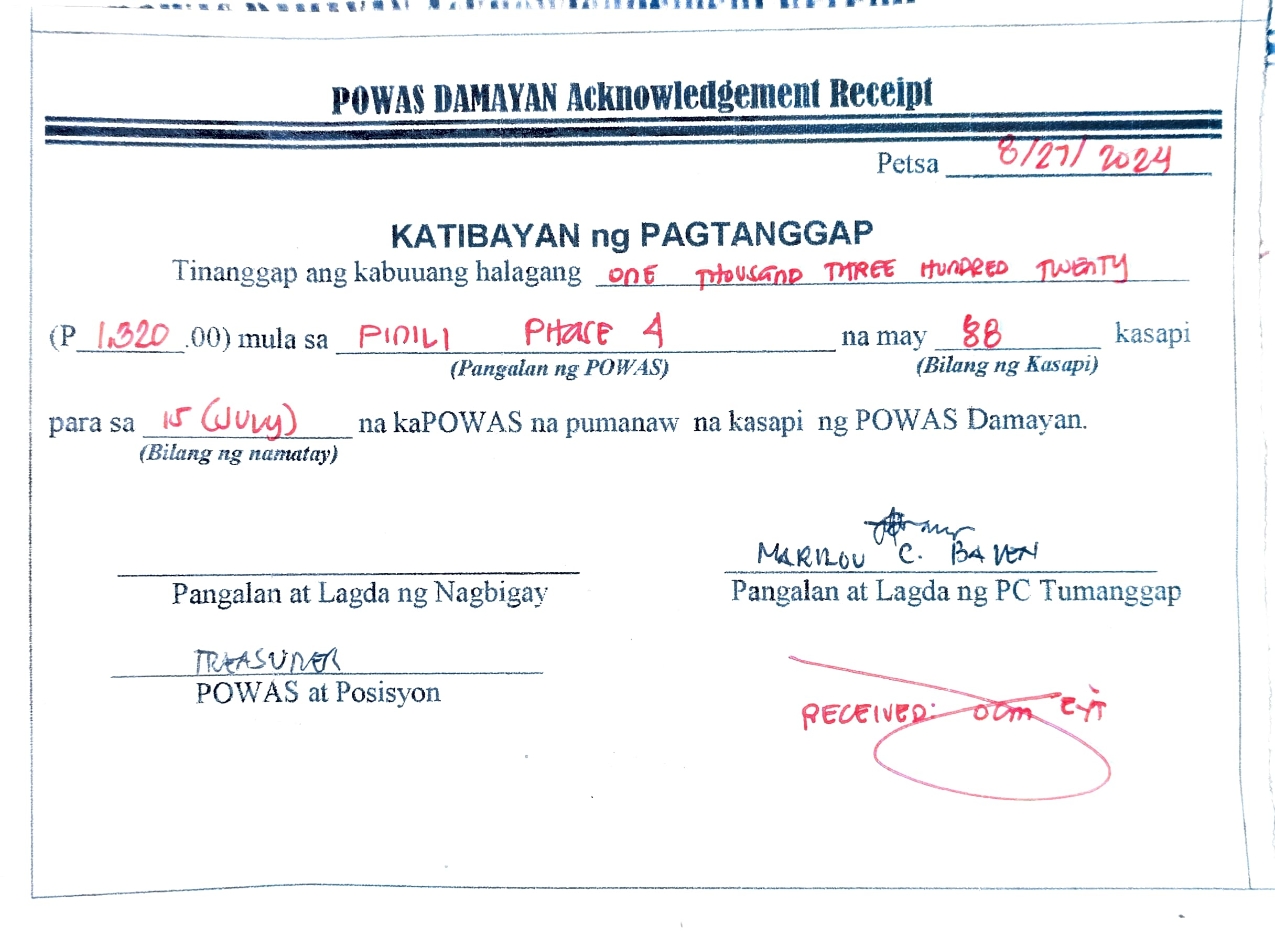 POWAS DAMAYAN Acknowledgement Receipt
Petsa 8/27/2024
KATIBAYAN ng PAGTANGGAP
Tinanggap ang kabuuang halagang ONE THOUSAND THREE HUNDRED TWENTY
(P 1,320 .00) mula sa PINILI PHASE 4 na may 88 kasapi
(Pangalan ng POWAS) (Bilang ng Kasapi)
para sa 15 (JULY) na kaPOWAS na pumanaw na kasapi ng POWAS Damayan.
(Bilang ng namatay)
MARILOU C. BAVEN
Pangalan at Lagda ng Nagbigay Pangalan at Lagda ng PC Tumanggap
TREASURER
POWAS at Posisyon
RECEIVED: